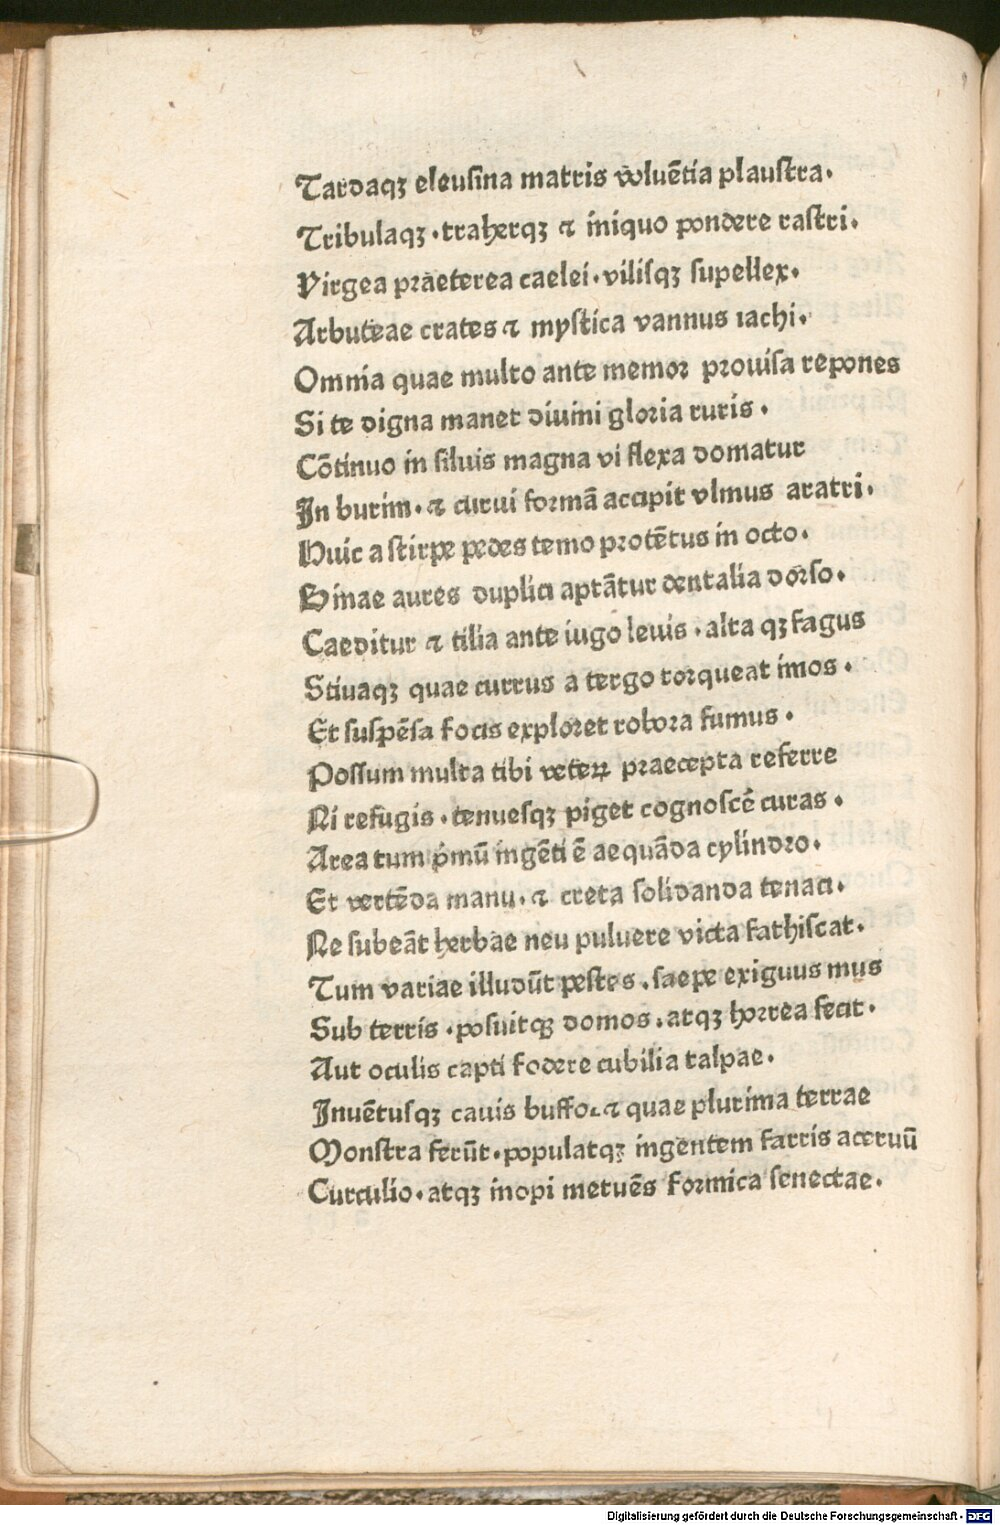 Tardaqꝫ eleusina matris voluētia plaustra.
Tribulaqꝫ·traherqꝫ ⁊ iniquo pondere rastri.
Virgea praeterea caelei·vilisqꝫ supellex.
Arbuteae crates ⁊ mystica vannus iachi.
Omnia quae multo ante memor prouisa repones
Si te digna manet diuini gloria ruris.
Cōtinuo in siluis magna vi flexa domatur
In burim·⁊ curui formā accipit vlmus aratri.
Huic a stirpe pedes temo protētus in octo.
Binae aures duplici aptātur dentalia dorso.
Caeditur ⁊ tilia ante iugo leuis·alta qꝫ fagus
Stiuaqꝫ quae currus a tergo torqueat imos.
Et suspēsa focis exploret robora fumus.
Possum multa tibi veteꝝ praecepta referre
Ni refugis·tenuesqꝫ piget cognoscē curas.
Area tum pͥmū ingēti ē aequāda cylindro.
Et vertēda manu·⁊ creta solidanda tenaci.
Ne subeāt herbae neu puluere victa fathiscat.
Tum variae illudūt pestes·saepe exiguus mus
Sub terris·posuitqꝫ domos·atqꝫ horrea fecit.
Aut oculis capti fodere cubilia talpae.
Inuētusqꝫ cauis buffo·⁊ quae plurima terrae
Monstra ferūt·populatqꝫ ingentem farris aceruū
Curculio·atqꝫ inopi metuēs formica senectae.
Digitalisierung gefördert durch die Deutsche Forschungsgemeinschaft - DFG